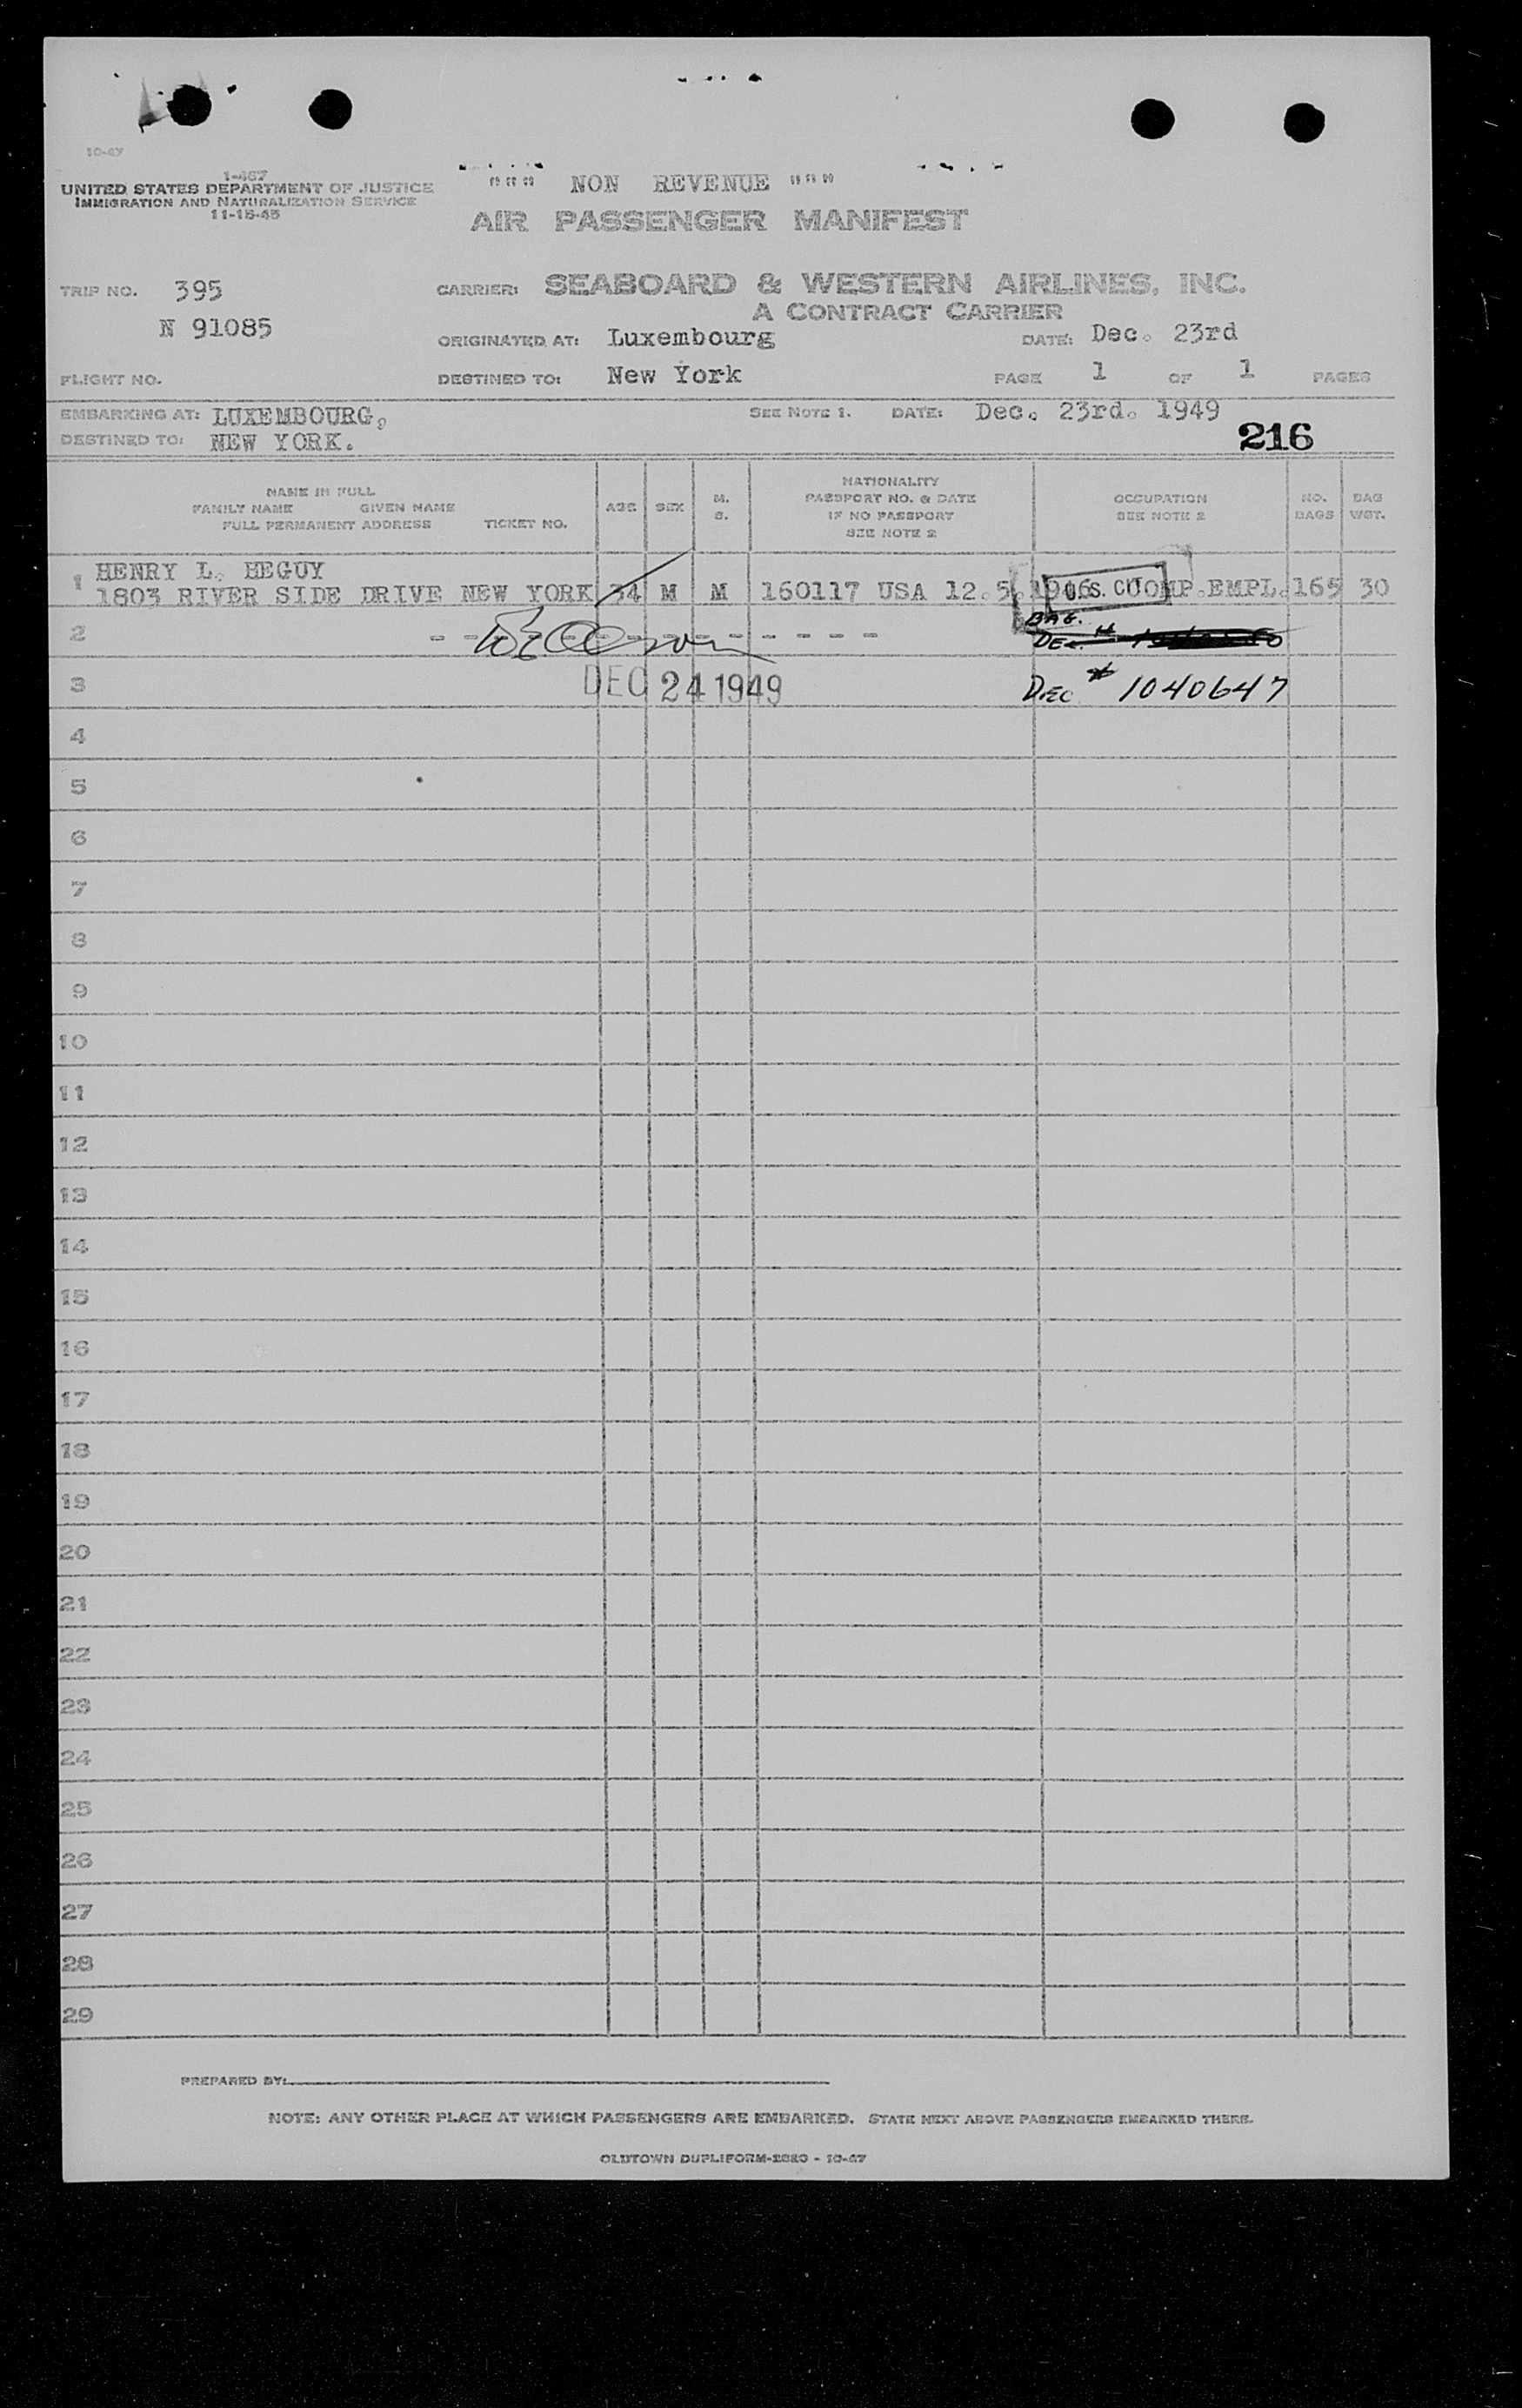 10-47
1-467
UNITED STATES DEPARTMENT OF JUSTICE
IMMIGRATION AND NATURALIZATION SERVICE
11-15-45
""" NON REVENUE """
AIR PASSENGER MANIFEST
TRIP NO. 395
CARRIER: SEABOARD & WESTERN AIRLINES, INC.
A CONTRACT CARRIER
N 91085
ORIGINATED AT: Luxembourg DATE: Dec. 23rd
FLIGHT NO. DESTINED TO: New York PAGE 1 OF 1 PAGES
EMBARKING AT: LUXEMBOURG, SEE NOTE 1. DATE: Dec. 23rd. 1949
DESTINED TO: NEW YORK. 216
NAME IN FULL
FAMILY NAME GIVEN NAME
FULL PERMANENT ADDRESS TICKET NO.
AGE SEX M. S.
NATIONALITY
PASSPORT NO. & DATE
IF NO PASSPORT
SEE NOTE 2
OCCUPATION
SEE NOTE 2
NO. BAGS
BAG WGT.
1 HENRY L. HEGUY
1803 RIVER SIDE DRIVE NEW YORK 34 M M 160117 USA 12.5. COMP.EMPL. 165 30
U.S.
BAG.
2 - - - - - - - - - - - - - -
DEC. #
3 DEC 24 1949 DEC # 1040647
4
5
6
7
8
9
10
11
12
13
14
15
16
17
18
19
20
21
22
23
24
25
26
27
28
29
PREPARED BY:
NOTE: ANY OTHER PLACE AT WHICH PASSENGERS ARE EMBARKED. STATE NEXT ABOVE PASSENGERS EMBARKED THERE.
OLDTOWN DUPLIFORM-2820 - 10-47